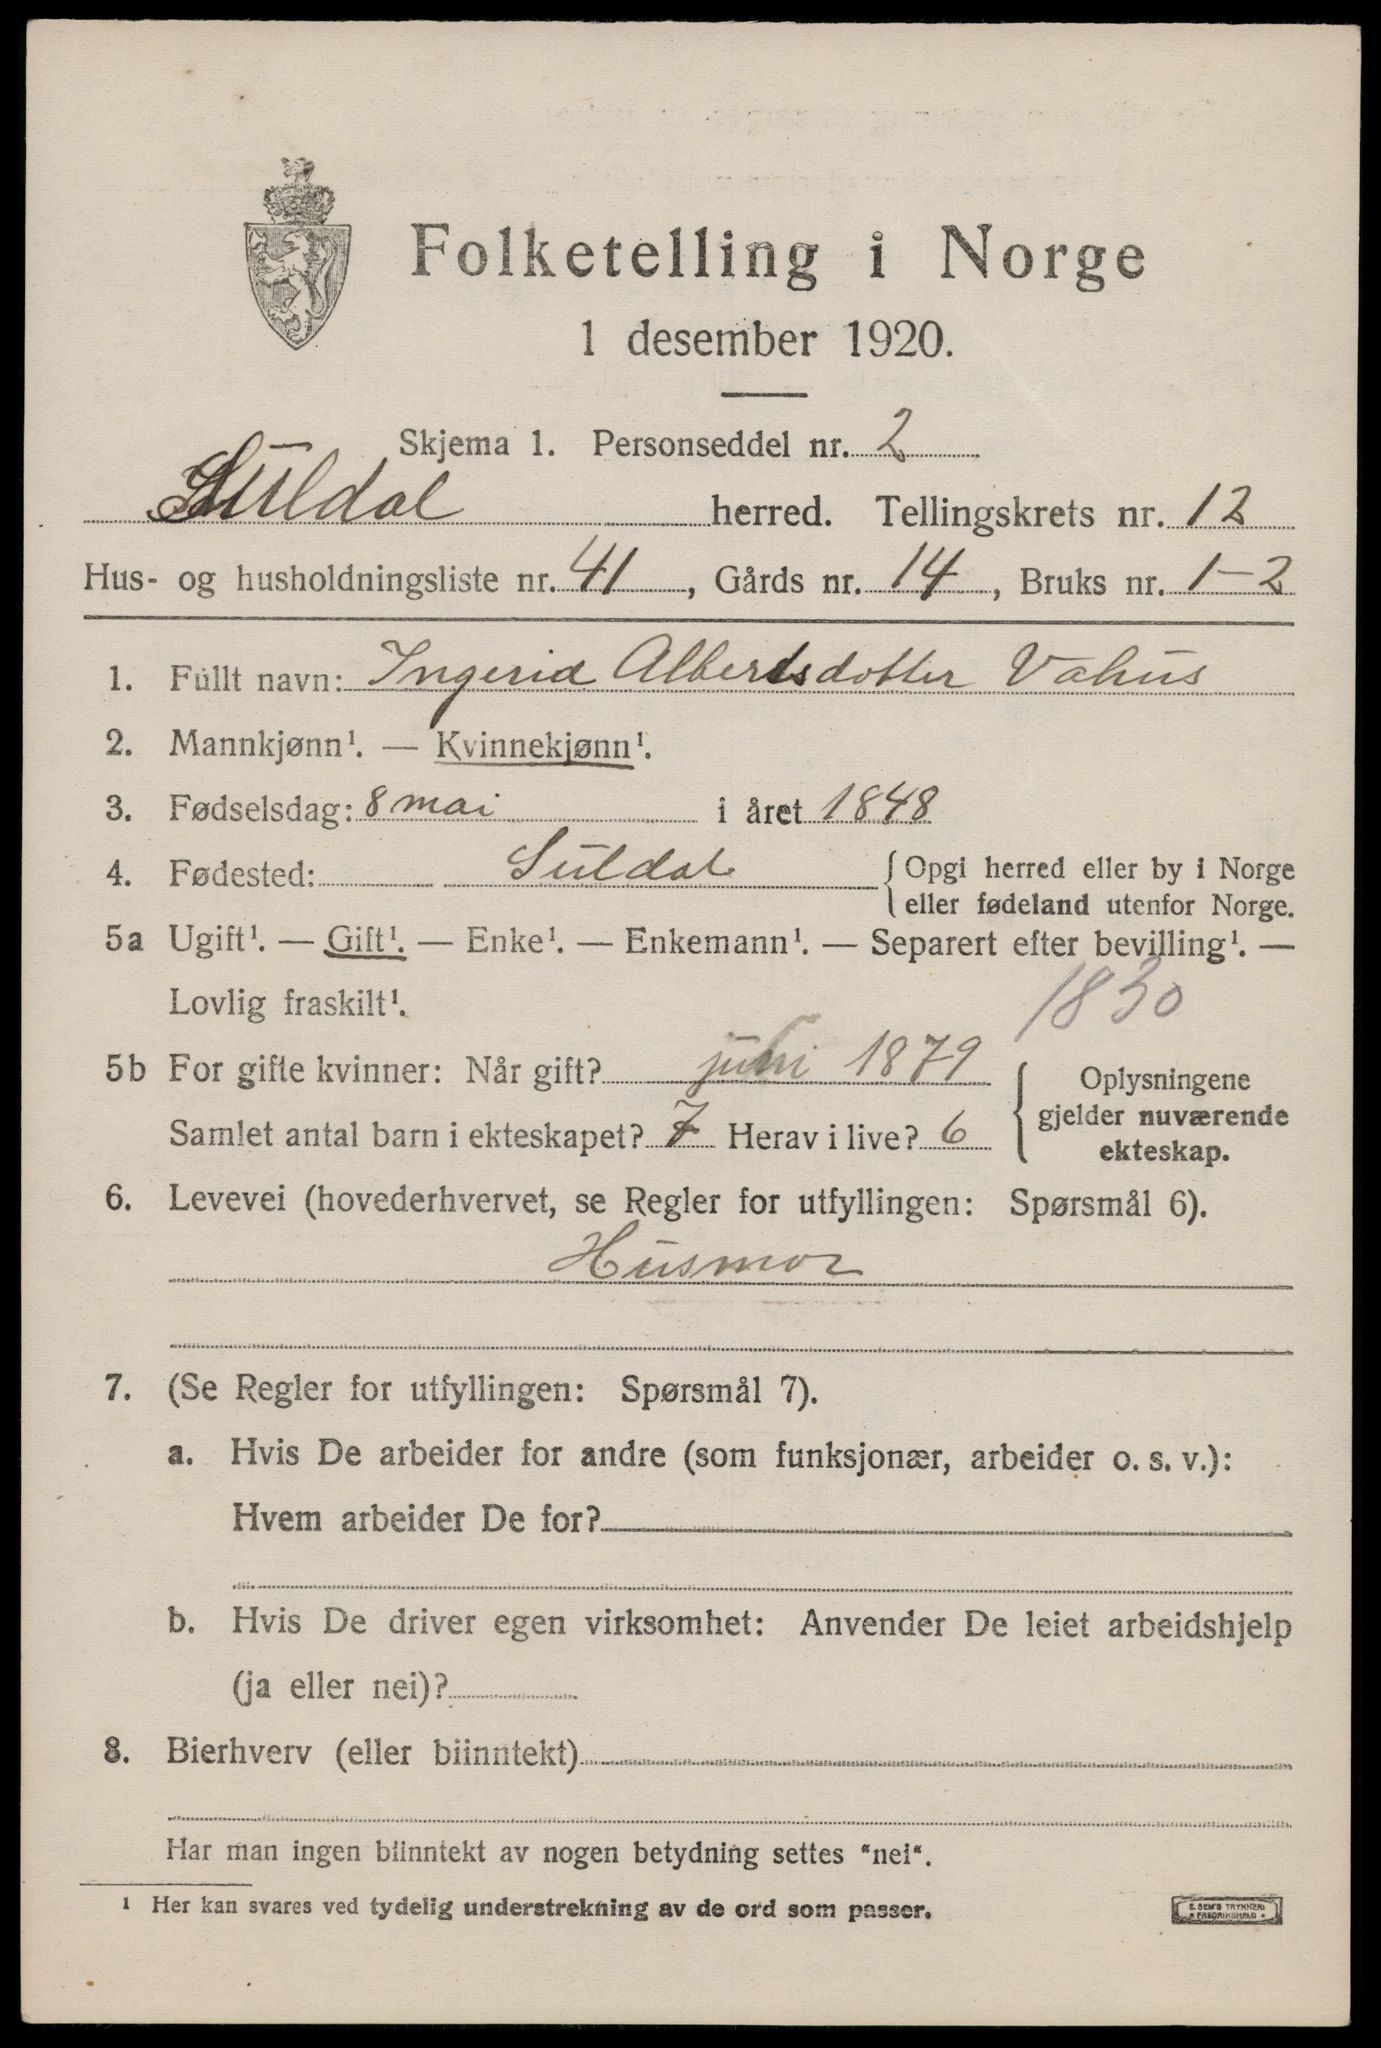 Folketelling i Norge
1 desember 1920.
Skjema 1. Personseddel nr. 2
Suldal herred. Tellingskrets nr. 12
Hus- og husholdningsliste nr. 41, Gårds nr. 14, Bruks nr. 1-2
1. Fullt navn: Ingerid Albertsdotter Vahus
2. Mannkjønn¹. — Kvinnekjønn¹.
3. Fødselsdag: 8 mai i året 1848
4. Fødested: Suldal { Opgi herred eller by i Norge
eller fødeland utenfor Norge.
5a Ugift¹. — Gift¹. — Enke¹. — Enkemann¹. — Separert efter bevilling¹. —
Lovlig fraskilt¹. 1830
5b For gifte kvinner: Når gift? 1879 { Oplysningene
gjelder nuværende
ekteskap.
Samlet antal barn i ekteskapet? 7 Herav i live? 6
6. Levevei (hovederhvervet, se Regler for utfyllingen: Spørsmål 6).
Husmor
7. (Se Regler for utfyllingen: Spørsmål 7).
a. Hvis De arbeider for andre (som funksjonær, arbeider o. s. v.):
Hvem arbeider De for?
b. Hvis De driver egen virksomhet: Anvender De leiet arbeidshjelp
(ja eller nei)?
8. Bierhverv (eller biinntekt)
Har man ingen biinntekt av nogen betydning settes "nei".
¹ Her kan svares ved tydelig understrekning av de ord som passer.
E. SEM'S TRYKKERI
• FREDRIKSHALD •